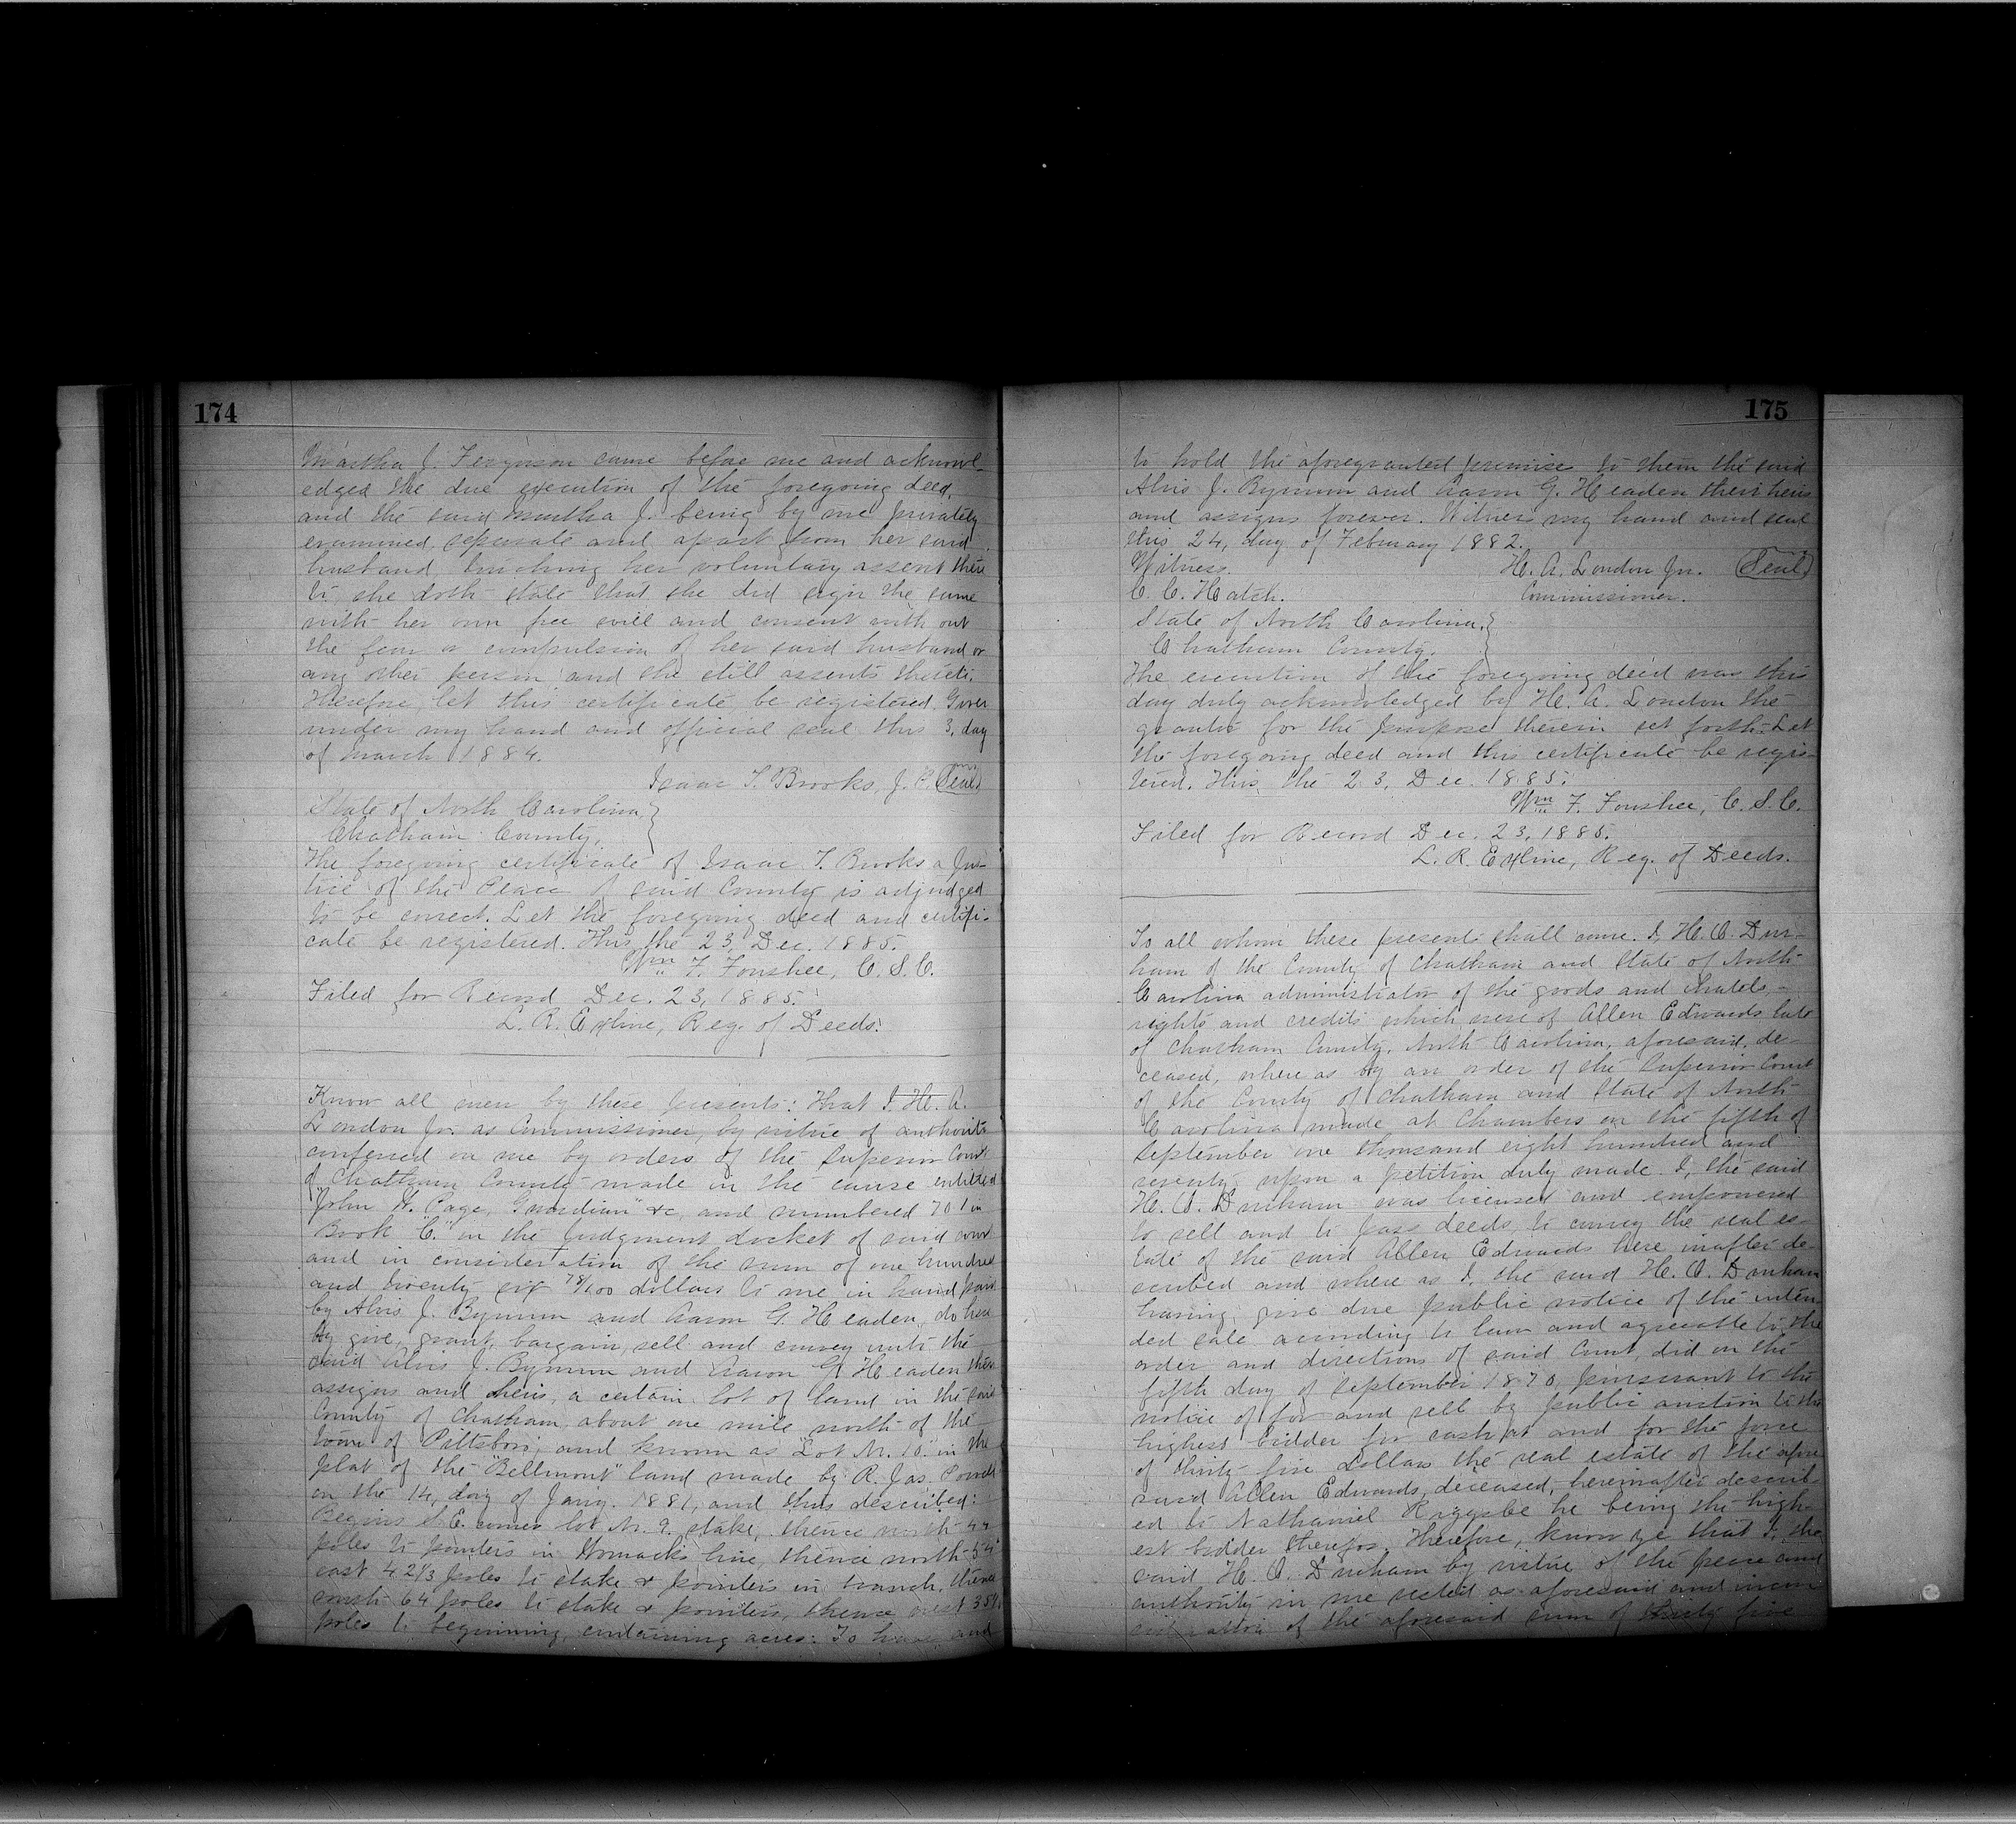 174
Martha J. Ferguson came before me and acknowl-
edged the due execution of the foregoing deed,
and the said Martha J. being by me privately
examined, seperate and apart from her said
husband, touching her voluntary assent there
to she doth state that she did sign the same
with her own free will and consent with out
the fear or compulsion of her said husband or
any other person and she still assents thereto.
Therefore let this certificate be registered. Given
under my hand and official seal this 3, day
of March 1884.
Isaac T. Brooks, J. P. (Seal)
State of North Carolina }
Chatham County, }
The foregoing certificate of Isaac T. Brooks a Jus-
tice of the Peace of said County is adjudged
to be correct. Let the foregoing deed and certifi-
cate be registered. This the 23, Dec. 1885.
Wm F. Foushee, C. S. C.
Filed for Record Dec. 23, 1885.
L. R. Exline, Reg. of Deeds.
Know all men by these presents: That I, H. A.
London Jr. as Commissioner, by virtue of authority
conferred on me by orders of the Superior Court
of Chatham County made in the cause entitled
"John H. Page, Guardian" &c, and numbered 701 in
Book "C." in the Judgment docket of said court
and in consideration of the sum of one hundred
and twenty six 78/100 dollars to me in hand paid
by Alvis J. Bynum and Aaron G. Headen, do here
by give, grant, bargain, sell and convey unto the
said Alvis J. Bynum and Aaron G. Headen their
assigns and heirs, a certain lot of land in the said
County of Chatham about one mile north of the
town of Pittsboro, and known as "Lot No. 10." in the
plat of the "Bellmont" land made by R. Jas. Powell
on the 14, day of Jany. 1881, and thus described:
Begins S. E. corner lot No. 9. stake, thence north 44
poles to pointers in Womack's line, thence north 54°
east 42 1/3 poles to stake & pointers in branch, thence
south 64 poles to stake & pointers, thence west 35
poles to beginning, containing acres: To have and
175
to hold the aforegranted premises to them the said
Alvis J. Bynum and Aaron G. Headen their heirs
and assigns forever. Witness my hand and seal
this 24, day of February 1882.
Witness. H. A. London Jr. (Seal)
C. C. Hatch. Commissioner.
State of North Carolina, }
Chatham County. }
The execution of the foregoing deed was this
day duly acknowledged by H. A. London the
grantor for the purpose therein set forth. Let
the foregoing deed and this certificate be regis-
tered. This the 23, Dec. 1885.
Wm F. Foushee, C. S. C.
Filed for Record Dec. 23, 1885.
L. R. Exline, Reg. of Deeds.
To all whom these presents shall come. I, H. C. Dur-
ham of the County of Chatham and State of North
Carolina administrator of the goods and chatels,
rights and credits which were of Allen Edwards late
of Chatham County, North Carolina, aforesaid, de-
ceased, where as by an order of the Superior Court
of the County of Chatham and State of North
Carolina made at Chambers on the fifth of
September one thousand eight hundred and
seventy, upon a petition duly made. I, the said
H. C. Durham was licensed and empowered
to sell and to pass deeds, to convey the real es-
tate of the said Allen Edwards here inafter de-
scribed and where as I, the said H. C. Durham
having, give due public notice of the inten
ded sale according to law and agreeable to the
order and directions of said Court, did on the
fifth day of September 1870, pursuant to the
notice of for and sell by public auction to the
highest bidder for cash at and for the force
of thirty five dollars the real estate of the afore
said Allen Edwards, deceased, hereinafter describ-
ed to Nathaniel Riggsbe he being the high-
est bidder therefor. Therefore, know ye that I, the
said H. C. Durham by virtue of the power and
authority in me vested as aforesaid and in con
sideration of the aforesaid sum of thirty five